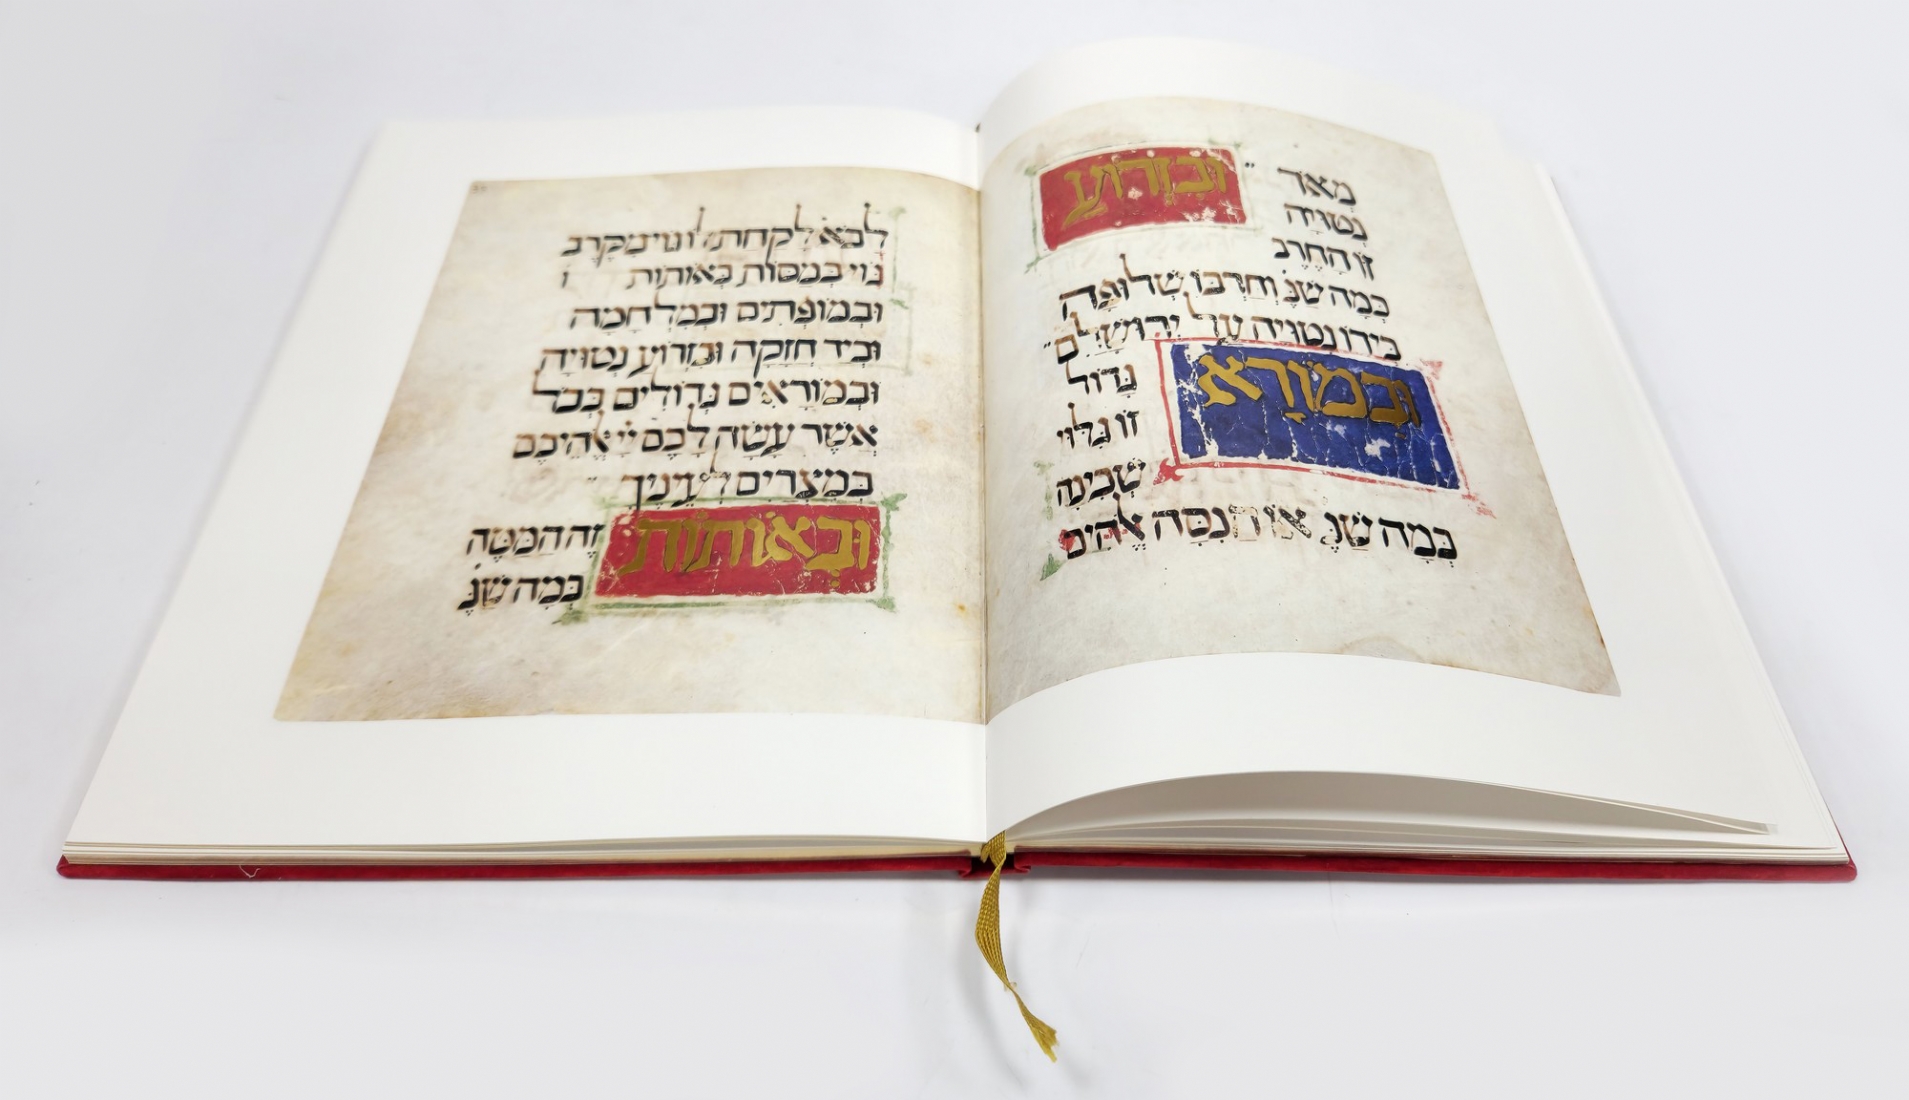 מאד ובזרוע
נטויה
זו החרב
כמה שנ וחרבו שלופה
בידו נטויה על ירושלם
ובמורא גדול
זו גלוי
שכינה
כמה שנ או הנסה אלהים
לבא לקחת לו גוי מקרב
גוי במסות באותות
ובמופתים ובמלחמה
וביד חזקה ובזרוע נטויה
ובמוראים גדולים ככל
אשר עשה לכם יי אלהיכם
במצרים לעיניך
ובאותות זה המטה
כמה שנ